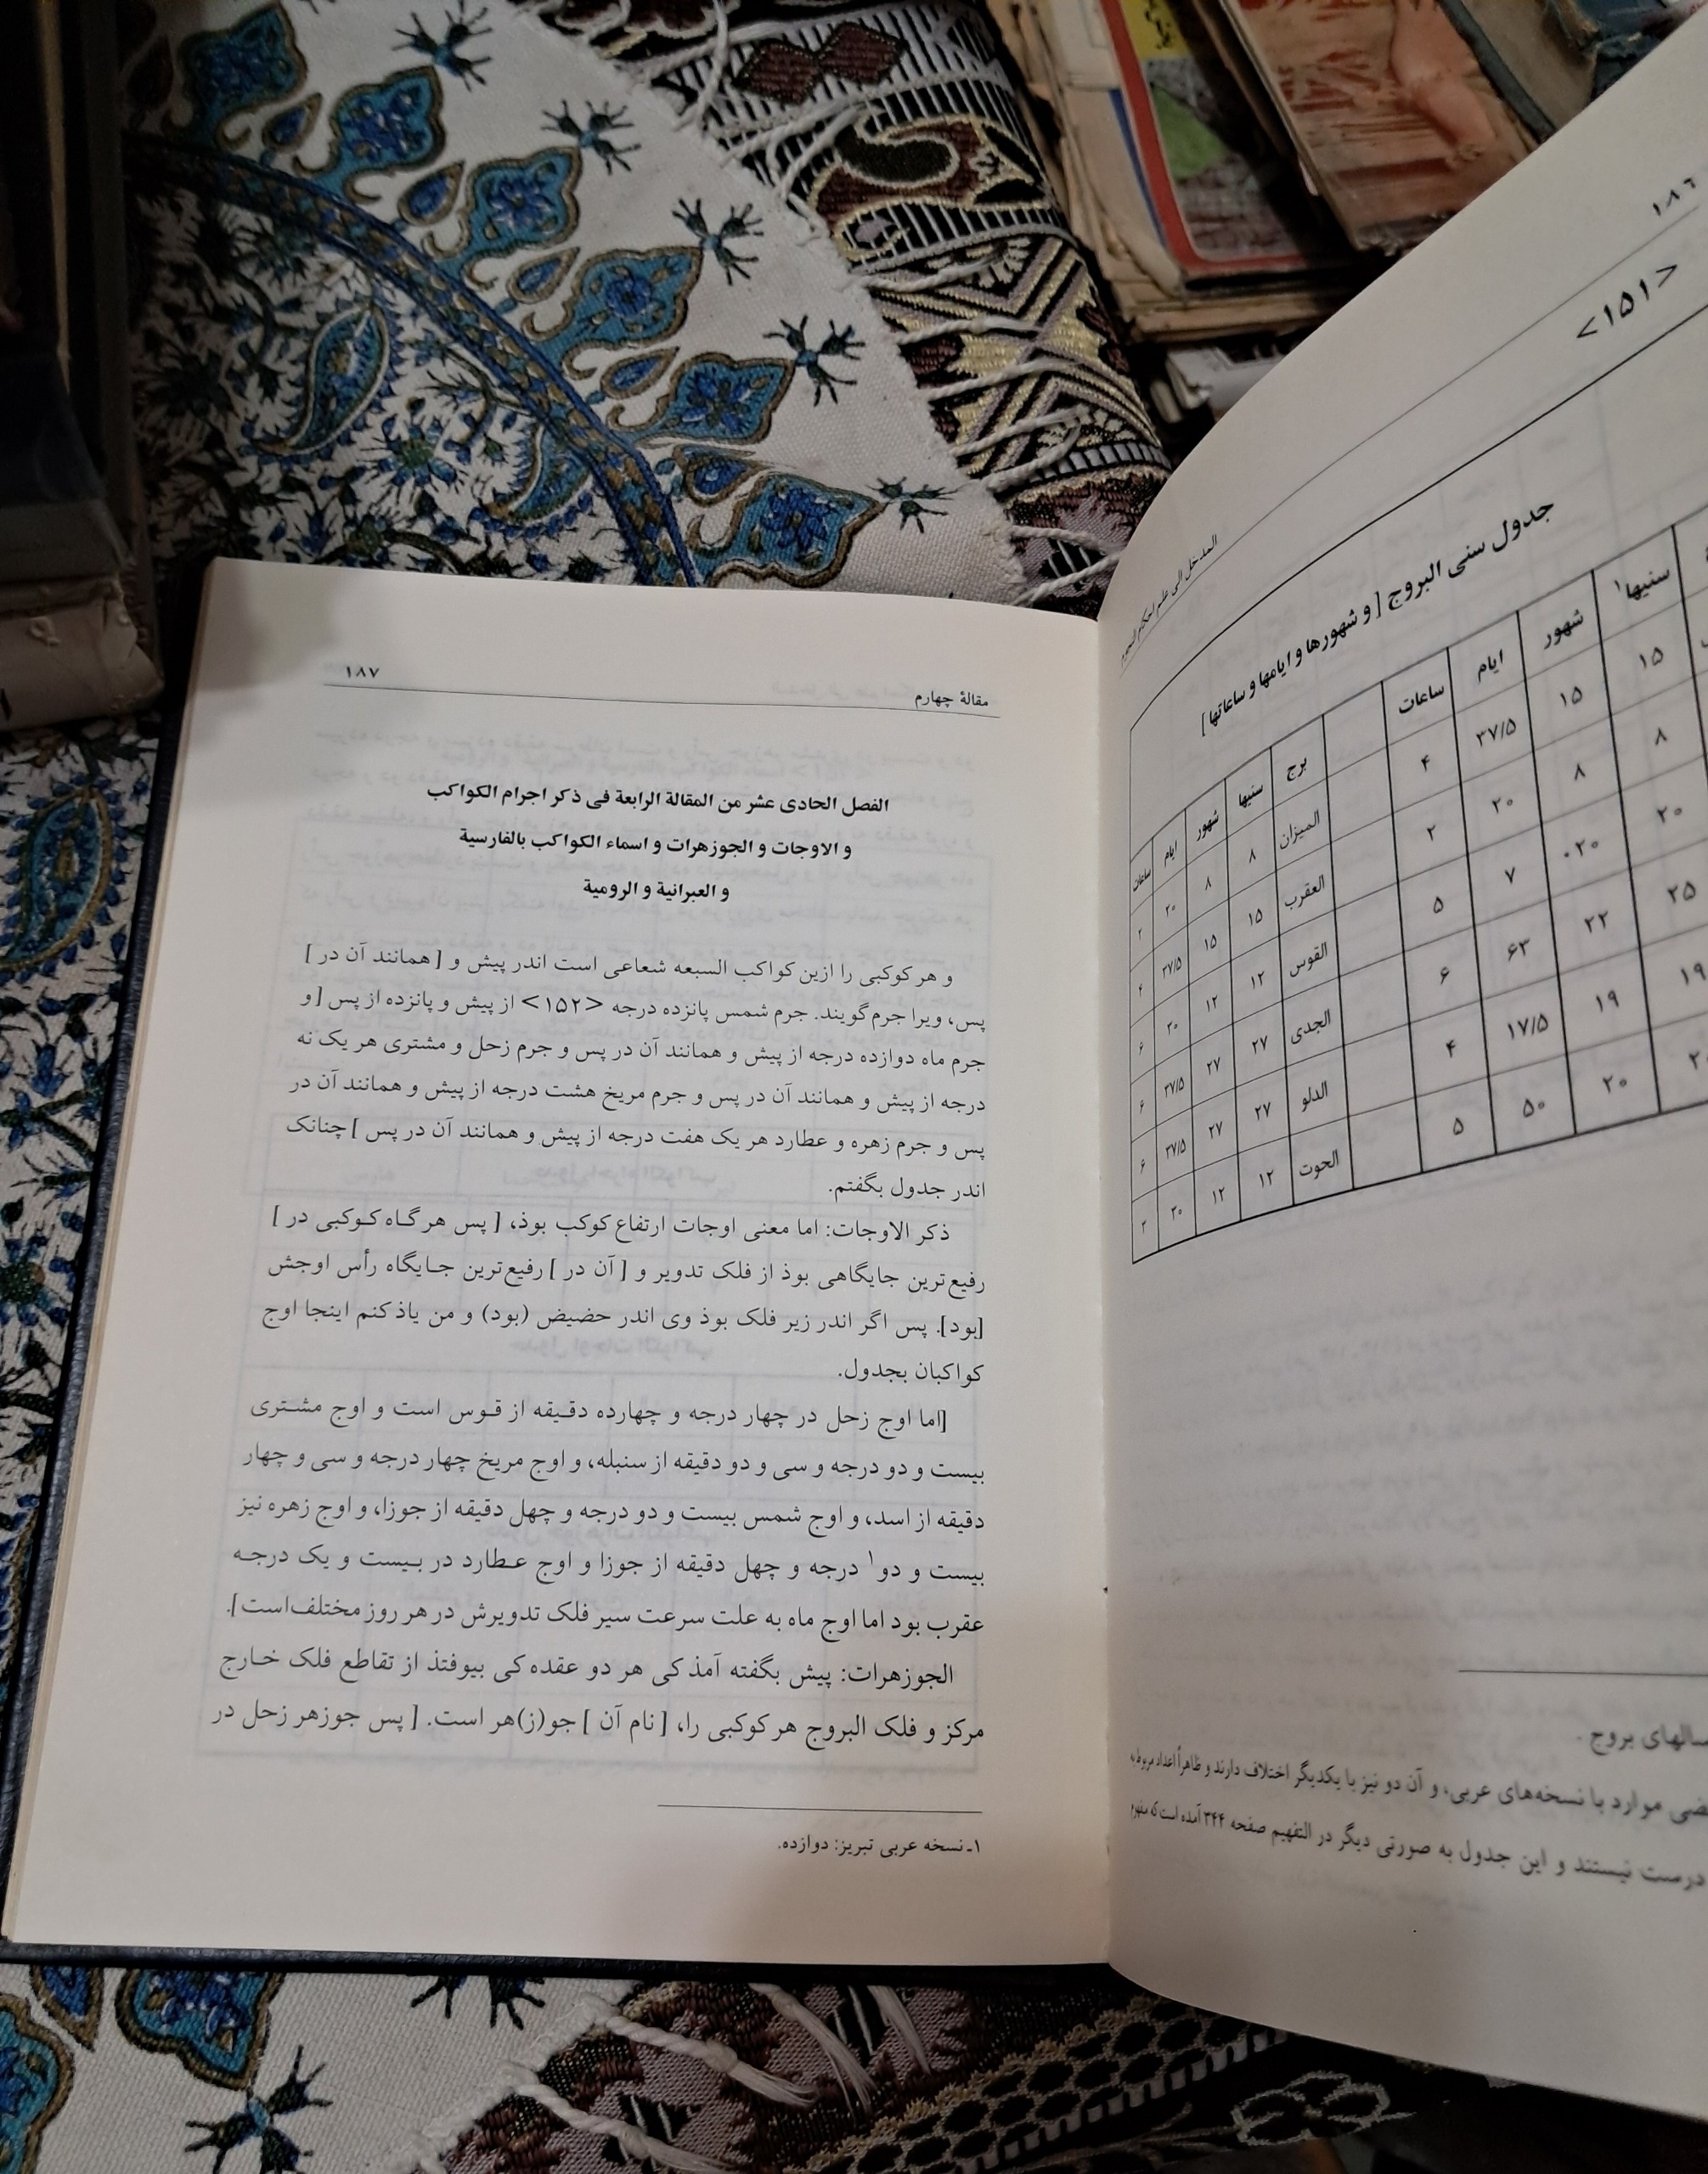 ١٨٦
<١٥١>
المدخل إلى علم احکام النجوم
جدول سنی البروج [ و شهورها و ایامها و ساعاتها ]
سنیها۱ شهور ایام ساعات برج سنیها شهور ایام ساعات
۱۵ ۱۵ ۳۷/۵ ۴ المیزان ۸ ۸ ۲۰ ۲
۸ ۸ ۲۰ ۲ العقرب ۱۵ ۱۵ ۳۷/۵ ۴
۲۰ ۲۰ ۷ ۵ القوس ۱۲ ۱۲ ۳۰ ۶
۲۵ ۲۲ ۶۳ ۶ الجدی ۲۷ ۲۷ ۳۷/۵ ۶
۱۹ ۱۹ ۱۷/۵ ۴ الدلو ۲۷ ۲۷ ۳۷/۵ ۶
۲۰ ۵۰ ۵ الحوت ۱۲ ۱۲ ۳۰ ۲
سالهای بروج .
موارد با نسخه‌های عربی، و آن دو نیز با یکدیگر اختلاف دارند و ظاهراً اعداد مربوط به
درست نیستند و این جدول به صورتی دیگر در التفهیم صفحه ۳۴۴ آمده است که
مقالۀ چهارم
۱۸۷
الفصل الحادی عشر من المقالة الرابعة فی ذکر اجرام الکواکب
و الاوجات و الجوزهرات و اسماء الکواکب بالفارسیة
و العبرانیة و الرومیة
و هر کوکبی را ازین کواکب السبعه شعاعی است اندر پیش و [ همانند آن در ]
پس، ویرا جرم گویند. جرم شمس پانزده درجه <۱۵۲> از پیش و پانزده از پس [ و
جرم ماه دوازده درجه از پیش و همانند آن در پس و جرم زحل و مشتری هر یک نه
درجه از پیش و همانند آن در پس و جرم مریخ هشت درجه از پیش و همانند آن در
پس و جرم زهره و عطارد هر یک هفت درجه از پیش و همانند آن در پس ] چنانک
اندر جدول بگفتم.
ذکر الاوجات: اما معنی اوجات ارتفاع کوکب بوذ، [ پس هر گاه کوکبی در ]
رفیع‌ترین جایگاهی بوذ از فلک تدویر و [ آن در ] رفیع‌ترین جایگاه رأس اوجش
[بود]. پس اگر اندر زیر فلک بوذ وی اندر حضیض (بود) و من یاذ کنم اینجا اوج
کواکبان بجدول.
[اما اوج زحل در چهار درجه و چهارده دقیقه از قوس است و اوج مشتری
بیست و دو درجه و سی و دو دقیقه از سنبله، و اوج مریخ چهار درجه و سی و چهار
دقیقه از اسد، و اوج شمس بیست و دو درجه و چهل دقیقه از جوزا، و اوج زهره نیز
بیست و دو۱ درجه و چهل دقیقه از جوزا و اوج عطارد در بیست و یک درجه
عقرب بود اما اوج ماه به علت سرعت سیر فلک تدویرش در هر روز مختلف‌است ].
الجوزهرات: پیش بگفته آمذ کی هر دو عقده کی بیوفتذ از تقاطع فلک خارج
مرکز و فلک البروج هر کوکبی را، [ نام آن ] جو(ز)هر است. [ پس جوزهر زحل در
۱ـ نسخه عربی تبریز: دوازده.